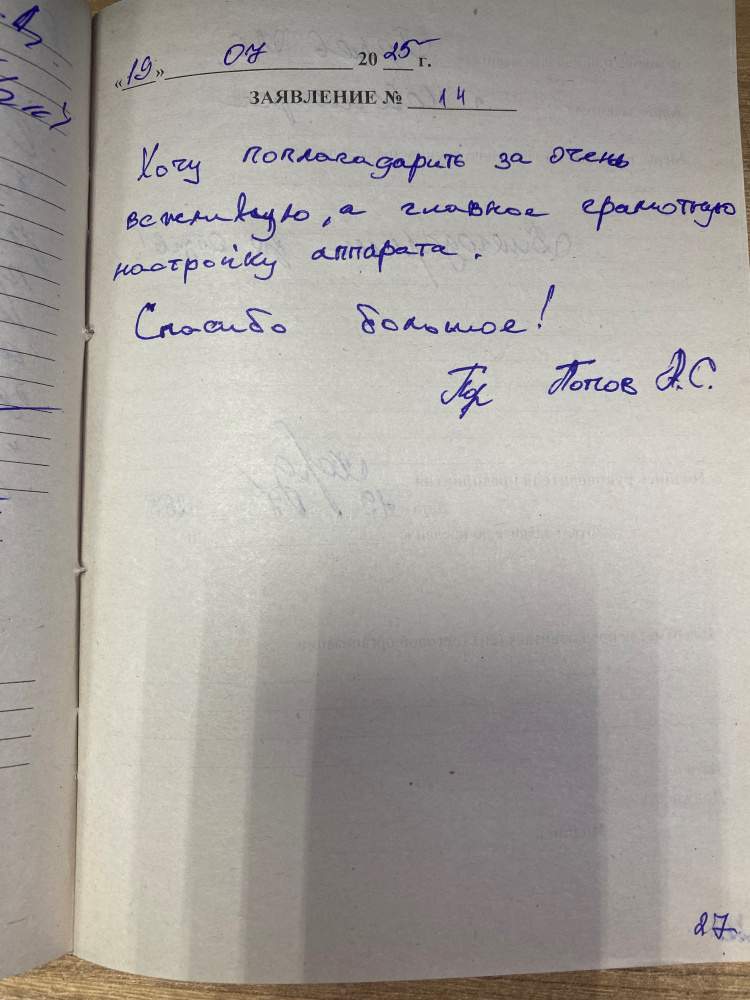 «19» 07 2025 г.
ЗАЯВЛЕНИЕ № 14
Хочу поплагадарить за очень
вежливую, а главное грамотную
настройку аппарата.
Спасибо большое!
Попов А.С.
27